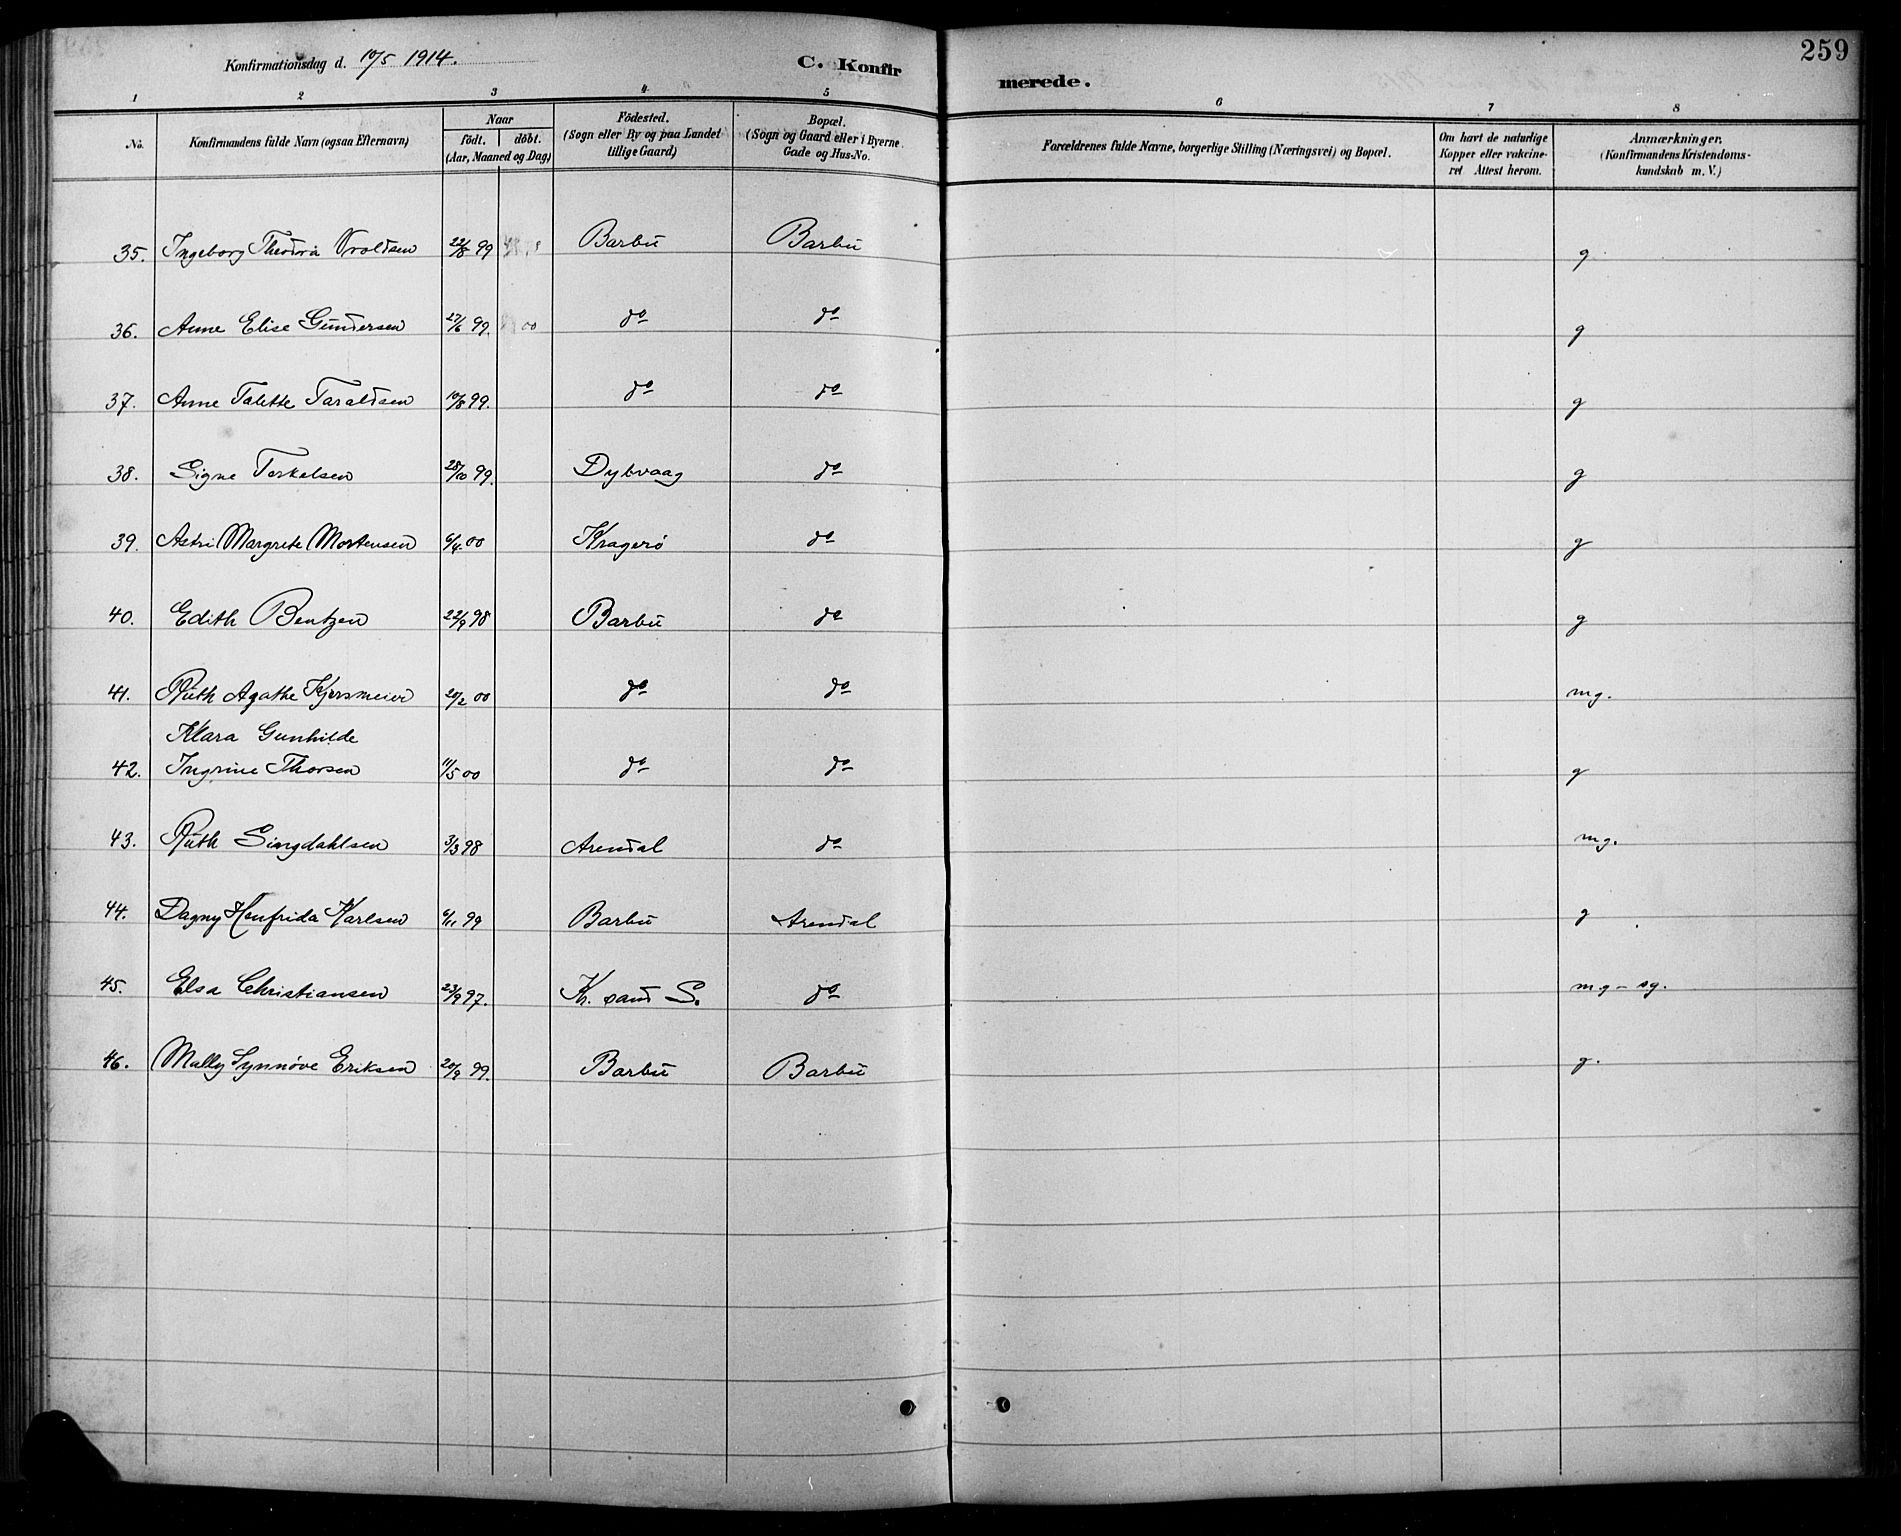 259
Konfirmationsdag d. 10/5 1914. C. Konfirmerede.
1 2 3 4 5 6 7 8
No. Konfirmandens fulde Navn (ogsaa Efternavn) Naar født. døbt. (Aar, Maaned og Dag) Fødested. (Sogn eller By og paa Landet tillige Gaard) Bopæl. (Sogn og Gaard eller i Byerne Gade og Hus-No. Forældrenes fulde Navne, borgerlige Stilling (Næringsvei) og Bopæl. Om havt de naturlige Kopper eller vakcineret Attest herom. Anmærkninger. (Konfirmandens Kristendomskundskab m. V.)
35. Ingeborg Theodora Vroldsen 22/8 99 Barbu Barbu g
36. Anne Elise Gundersen 27/6 99. do do g
37. Anne Talette Taraldsen 10/8 99. do do g
38. Signe Terkelsen 28/10 99. Dybvaag do g
39. Astri Margrete Mortensen 6/4 00 Kragerø do g
40. Edith Bentzen 22/9 98 Barbu do g
41. Ruth Agathe Kjørsmeier 20/2 00 do do mg.
Klara Gunhilde
42. Ingrine Thorsen 11/5 00 do do g
43. Ruth Singdahlsen 3/3 98 Arendal do mg.
44. Dagny Henfrida Karlsen 6/11 99 Barbu Arendal g
45. Elsa Christiansen 23/9 97. Kr. sand S. do mg - sg.
46. Mally Synnøve Eriksen 20/9 99. Barbu Barbu g.